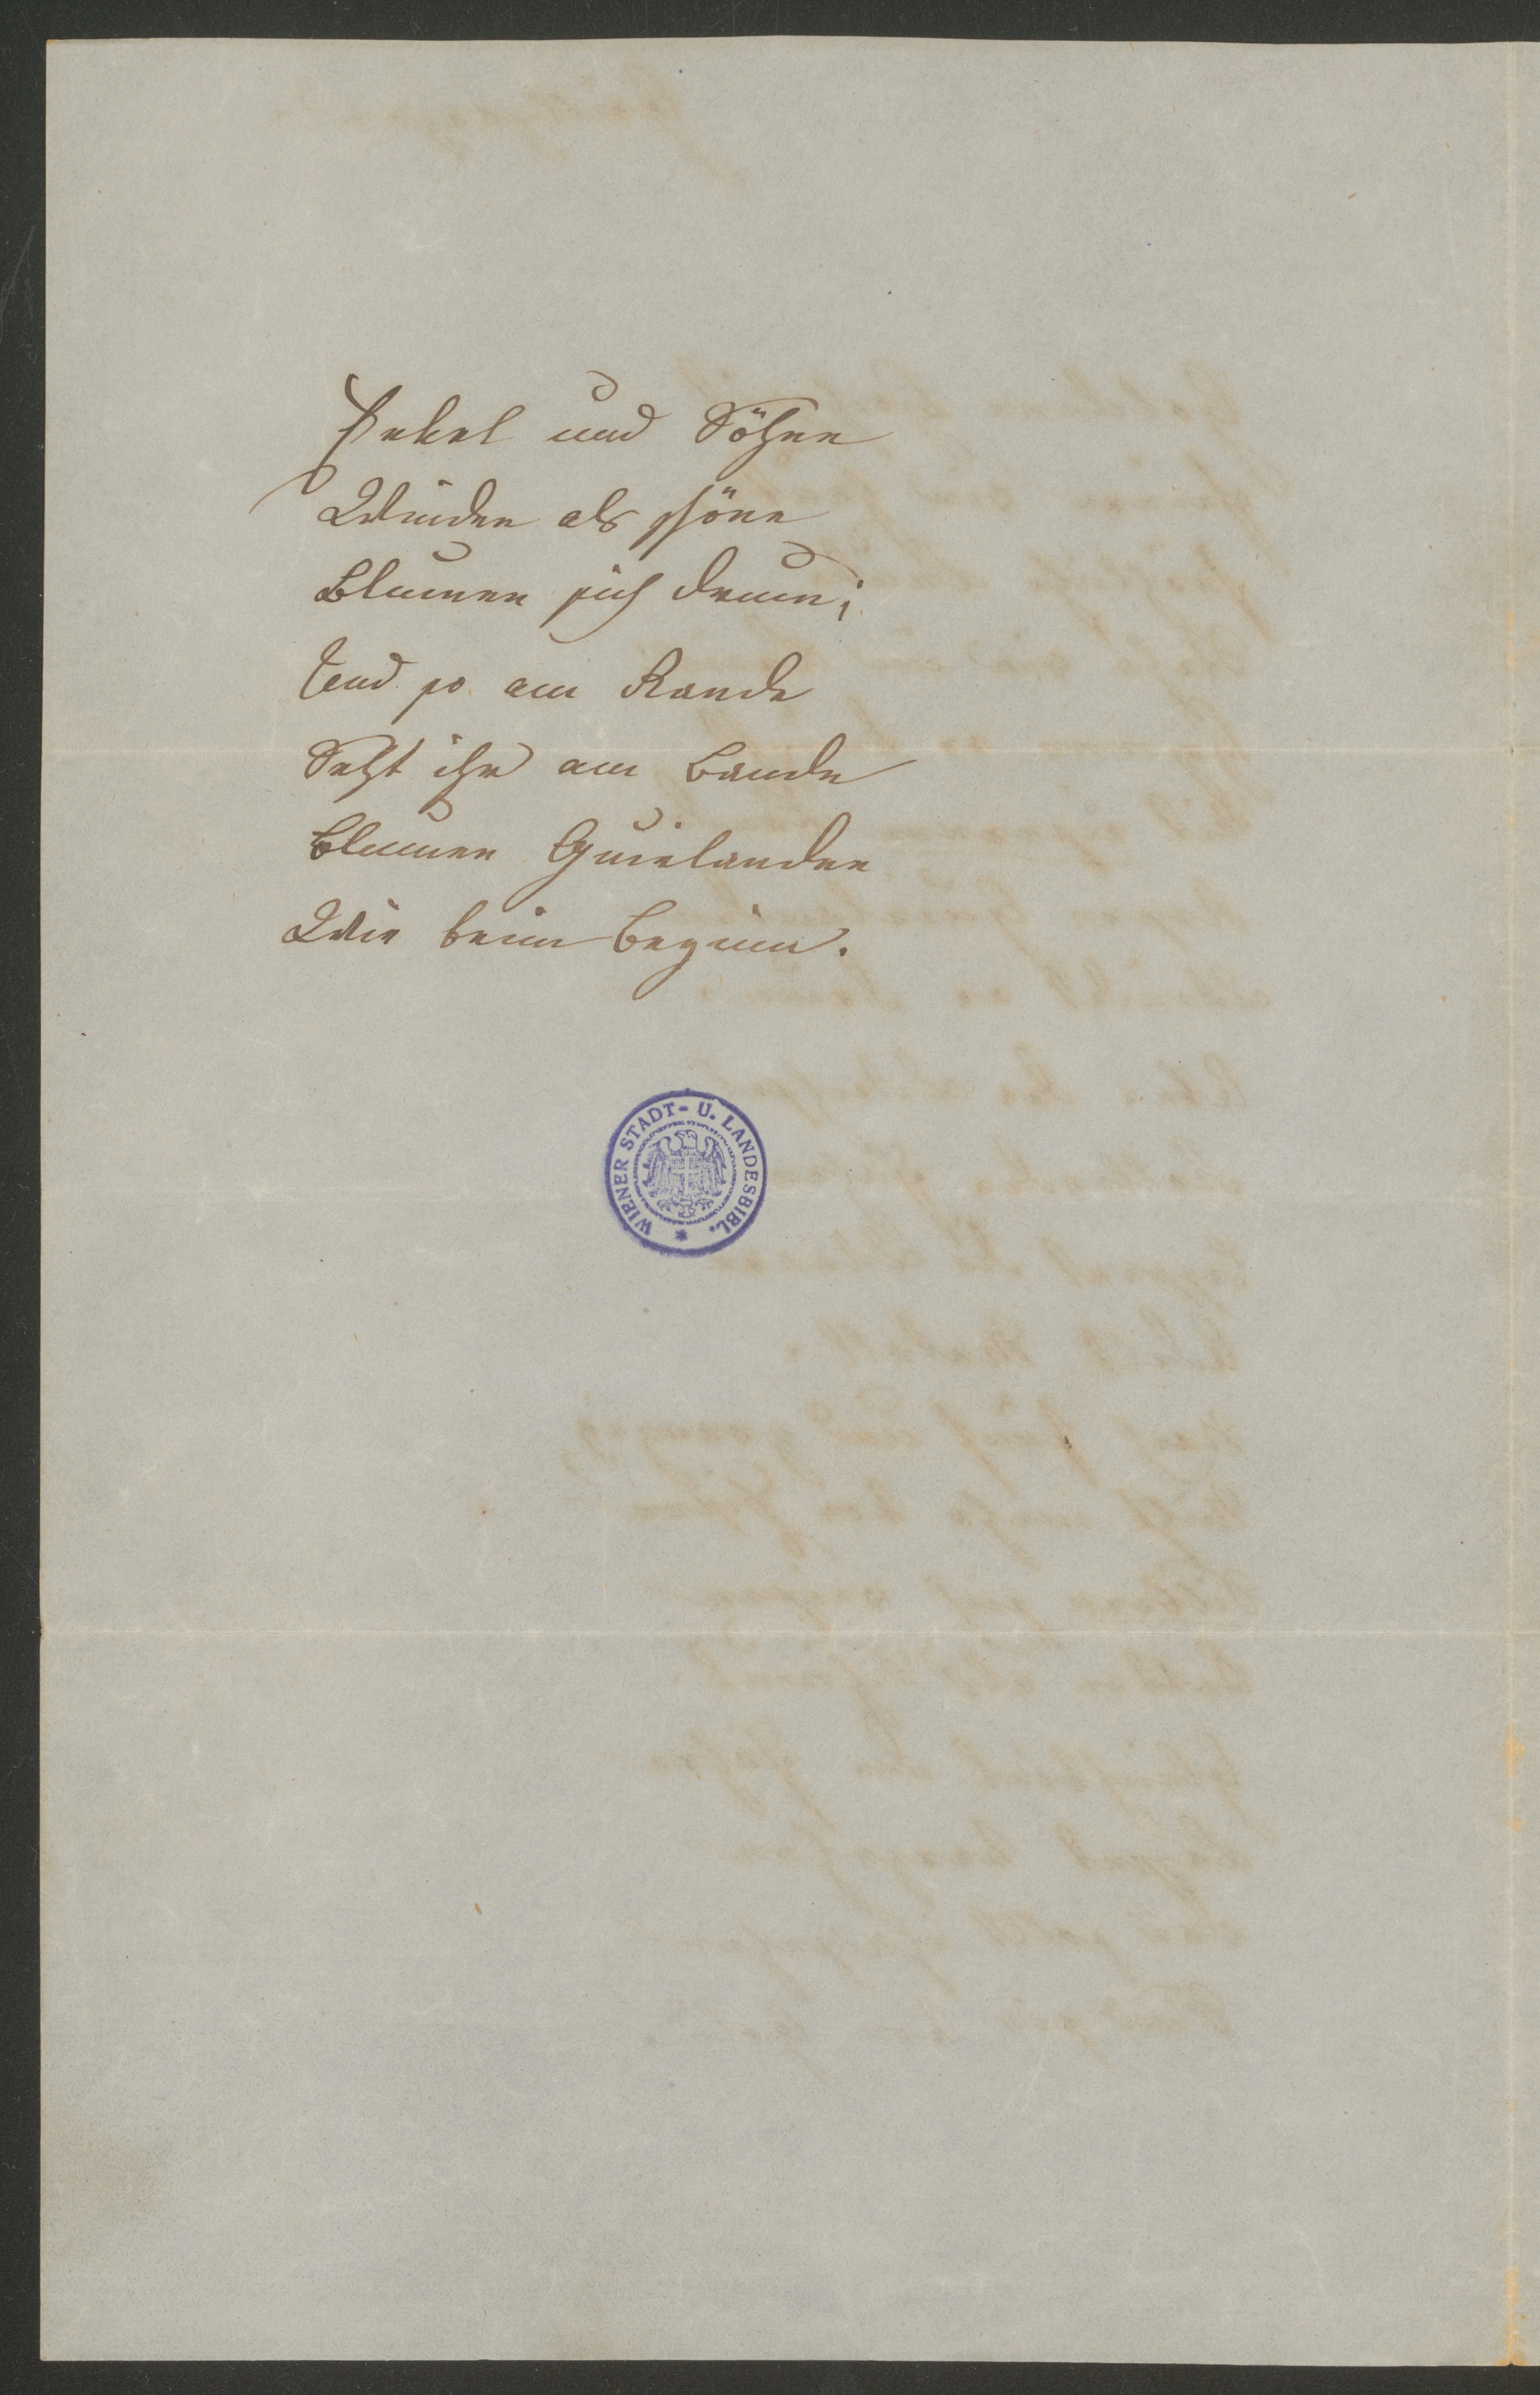 Enkel und Söhne
Winden als schöne
Blumen sich drum;
Und so am Rande
Seht ihr am Bande
Blumen Guirlanden
Wie beim Beginn.
WIENER STADT- U. LANDESBIBL. *